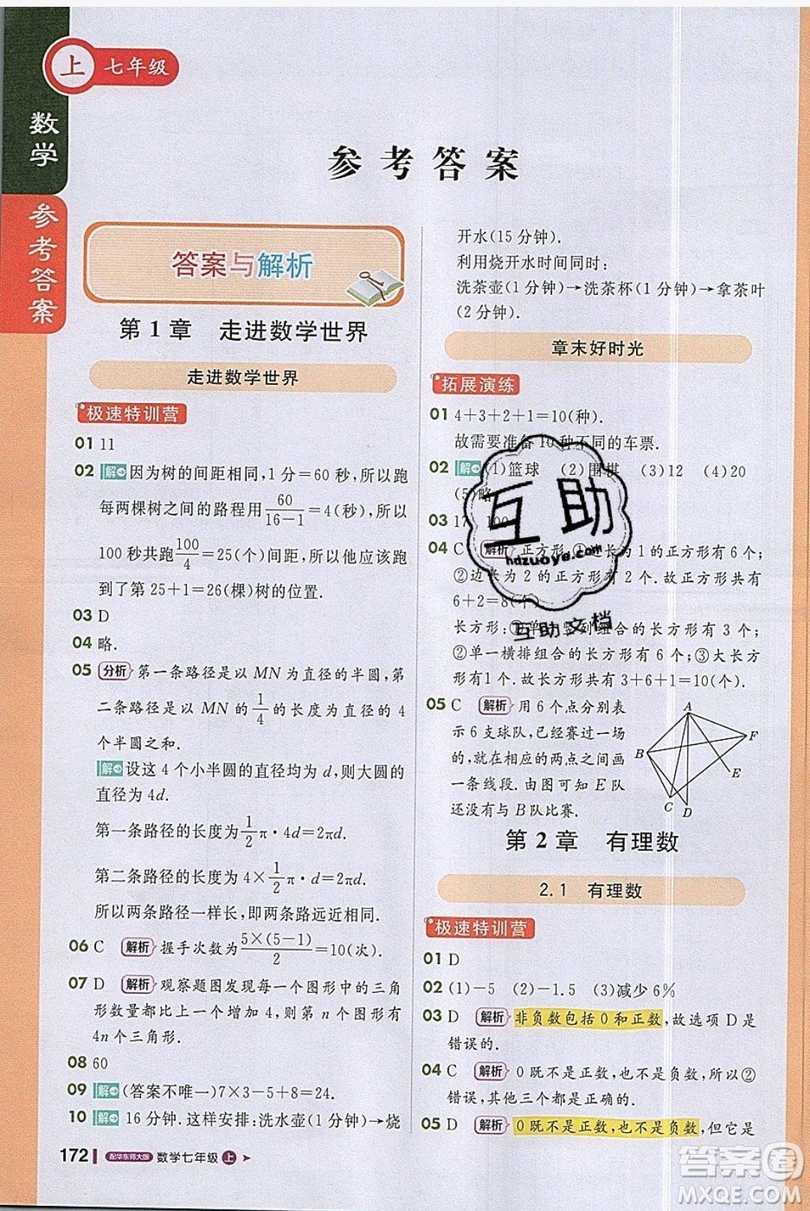 上 七年级
数学
参考答案
参考答案
答案与解析
第1章 走进数学世界
走进数学世界
极速特训营
01 11
02 解 因为树的间距相同,1分=60秒,所以跑
每两棵树之间的路程用60/(16-1)=4(秒),所以
100秒共跑100/4=25(个)间距,所以他应该跑
到了第25+1=26(棵)树的位置.
03 D
04 略.
05 分析 第一条路径是以MN为直径的半圆,第
二条路径是以MN的1/4的长度为直径的4
个半圆之和.
解 设这4个小半圆的直径均为d,则大圆的
直径为4d.
第一条路径的长度为1/2π·4d=2πd.
第二条路径的长度为4×1/2π·d=2πd.
所以两条路径的长度一样,即两条路远近相同.
06 C 解析 握手次数为5×(5-1)/2=10(次).
07 D 解析 观察题图发现每一个图形中的三角
形数量都比上一个增加4,所以第n个图形有
4n个三角形.
08 60
09 解 (答案不唯一)7×3-5+8=24.
10 解 16分钟.这样安排:洗水壶(1分钟)→烧
开水(15分钟).
利用烧开水时间同时:
洗茶壶(1分钟)→洗茶杯(1分钟)→拿茶叶
(2分钟).
章末好时光
拓展演练
01 4+3+2+1=10(种).
故需要准备10种不同的车票.
02 解 (1)篮球 (2)围棋 (3)12 (4)20
(5)略
03 17 100
04 C 解析 正方形:①边长为1的正方形有6个;
②边长为2的正方形有2个.故正方形共有
6+2=8(个).
长方形:①单一竖列组合的长方形有3个;
②单一横排组合的长方形有6个;③大长方
形有1个.故长方形共有3+6+1=10(个).
05 C 解析 用6个点分别表
示6支球队,已经赛过的,就
在相应的两点之间画一
条线段.由图可知E队
还没有与B队比赛.
A
B
F
E
C
D
第2章 有理数
2.1 有理数
极速特训营
01 D
02 (1)-5 (2)-1.5 (3)减少6%
03 D 解析 非负数包括0和正数,故选项D是
错误的.
04 C 解析 0既不是正数,也不是负数,所以②
错误,其他三个都是正确的.
05 D 解析 0既不是正数,也不是负数,但它是
172 配华东师大版 数学七年级 上
互助
hdzuoye.com
互助文档
答案圈
MXQE.COM